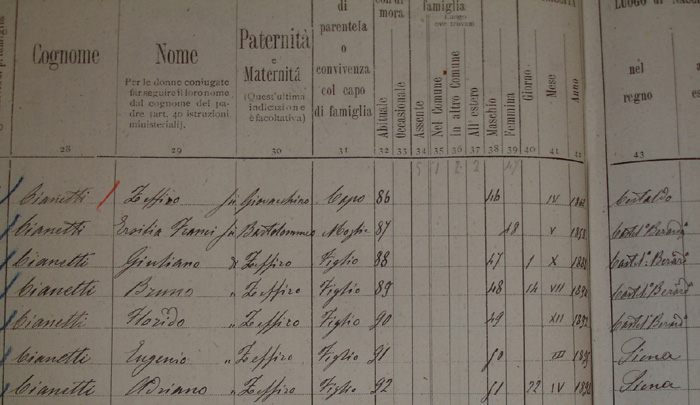 di
parentela
o
convivenza
col capo
di famiglia
mora
famiglia
Cognome
Nome
Per le donne coniugate
far seguire il loro nome
dal cognome del pa-
dre (art. 40 istruzioni
ministeriali).
Paternità
e
Maternità
(Quest'ultima
indicazione
è facoltativa)
Abituale
Occasionale
Assente
Nel Comune
in altro Comune
All'estero
Maschio
Femmina
Giorno
Mese
Anno
nel
regno
28 29 30 31 32 33 34 35 36 37 38 39 40 41 42 43
Cianetti Zeffiro fu Giovacchino Capo 86 46 IV Certaldo
Cianetti Ersilia Franci fu Bartolommeo Moglie 87 48 V Castel. Berardo
Cianetti Giuliano di Zeffiro Figlio 88 47 1 X Castel. Berardo
Cianetti Bruno " Zeffiro Figlio 89 48 14 VII Castel. Berardo
Cianetti Florido " Zeffiro Figlio 90 49 XII Castel. Berardo
Cianetti Eugenio " Zeffiro Figlio 91 50 III Siena
Cianetti Adriano " Zeffiro Figlio 92 51 22 IV Siena